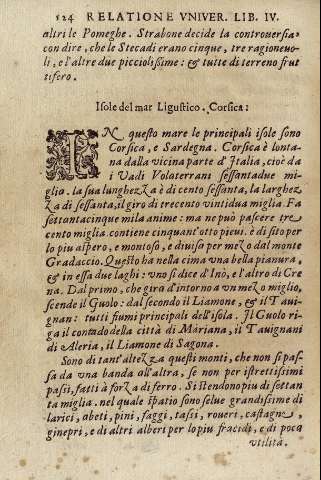 124 RELATIONE VNIVER. LIB. IV.
altri le Pomeghe. Strabone decide la controuersia:
con dire, che le Stecadi erano cinque, tre ragioneuo
li, e l'altre due picciolissime: & tutte di terreno frut
tifero.
Isole del mar Ligustico. Corsica:
IN questo mare le principali isole sono
Corsica, e Sardegna. Corsica è lonta-
na dalla vicina parte d'Italia, cioè da
i Vadi Volaterrani sessantadue mi-
glio. la sua lunghezza è di cento sessanta, la larghez
za di sessanta, il giro di trecento vintidua miglia. Fa
settantacinque mila anime: ma ne può pascere tre
cento miglia. contiene cinquant'otto pieui. è di sito per
lo piu aspero, e montoso, e diuisa per mezo dal monte
Gradaccio. Questo ha nella cima vna bella pianura,
& in essa due laghi: vno si dice d'Inò, e l'altro di Cre
na. Dal primo, che gira d'intorno a vn mezo miglio,
scende il Guolo: dal secondo il Liamone, & il Taui
gnan: tutti fiumi principali dell'isola. Il Guolo ri
ga il contado della città di Mariana, il Tauignani
di Aleria, il Liamone di Sagona.
Sono di tant'altezza questi monti, che non si pas-
sa da vna banda all'altra, se non per istrettissimi
passi, fatti à forza di ferro. Si stendono piu di settan
ta miglia. nel quale spatio sono selue grandissime di
larici, abeti, pini, faggi, tassi, roueri, castagne,
ginepri, e di altri alberi per lo piu fracidi, e di poca
vtilità.